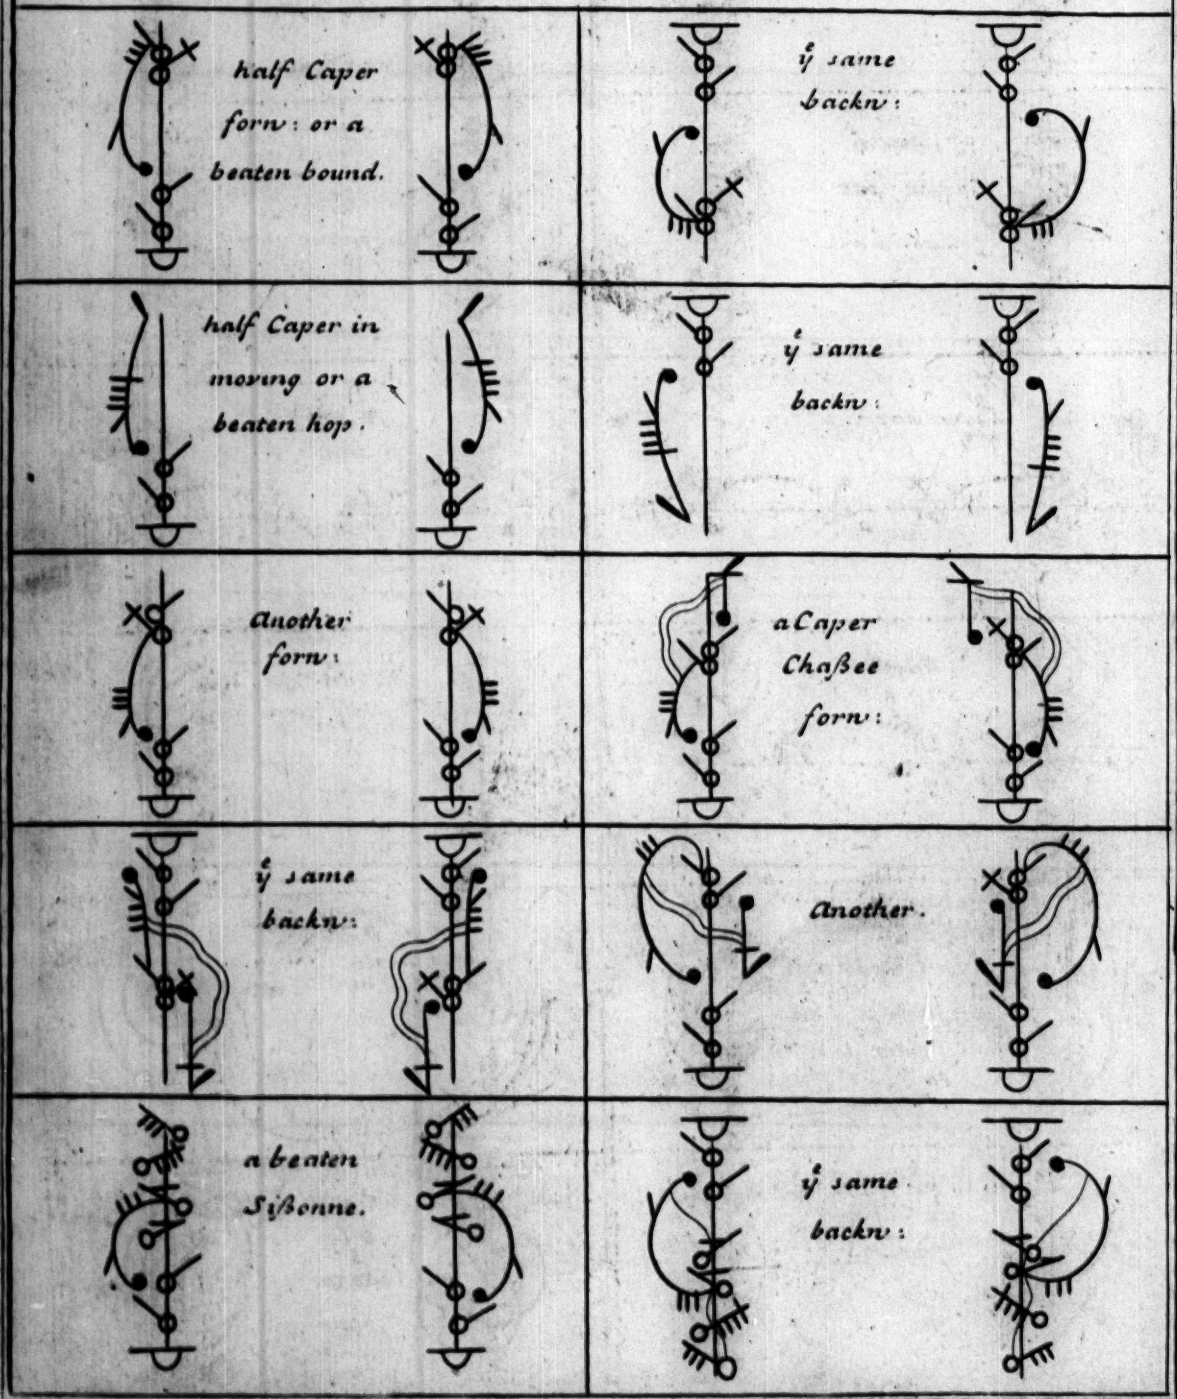 half Caper
forn: or a
beaten bound.
yͤ same
backn:
half Caper in
moving or a
beaten hop.
yͤ same
backn:
Another
forn:
a Caper
Chaßee
forn:
yͤ same
backn:
Another.
a beaten
Sißonne.
yͤ same
backn: